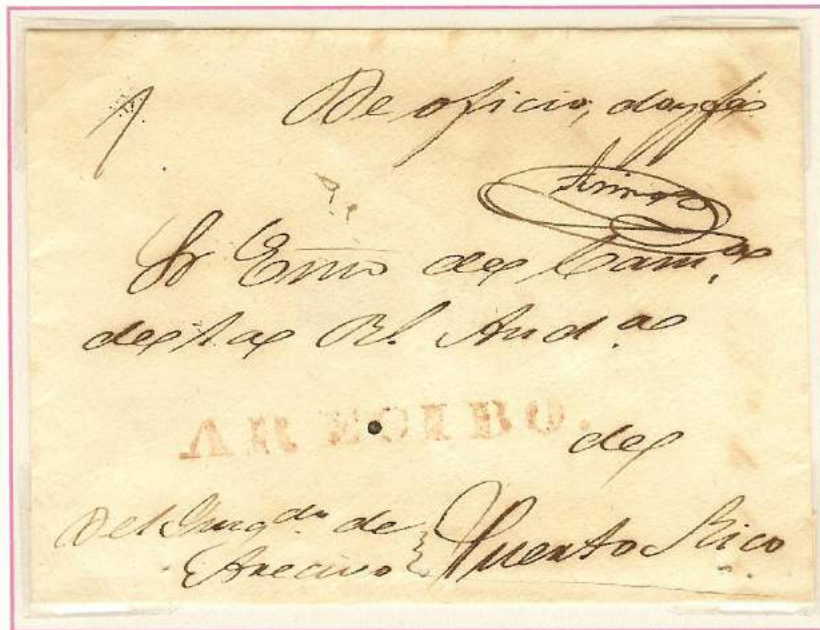 De oficio, doy fe
Sr Esno de Cam.ª
de la Rl. Aud.ª
ARECIBO.
de
Del Juzg.do de
Arecivo
Puerto Rico